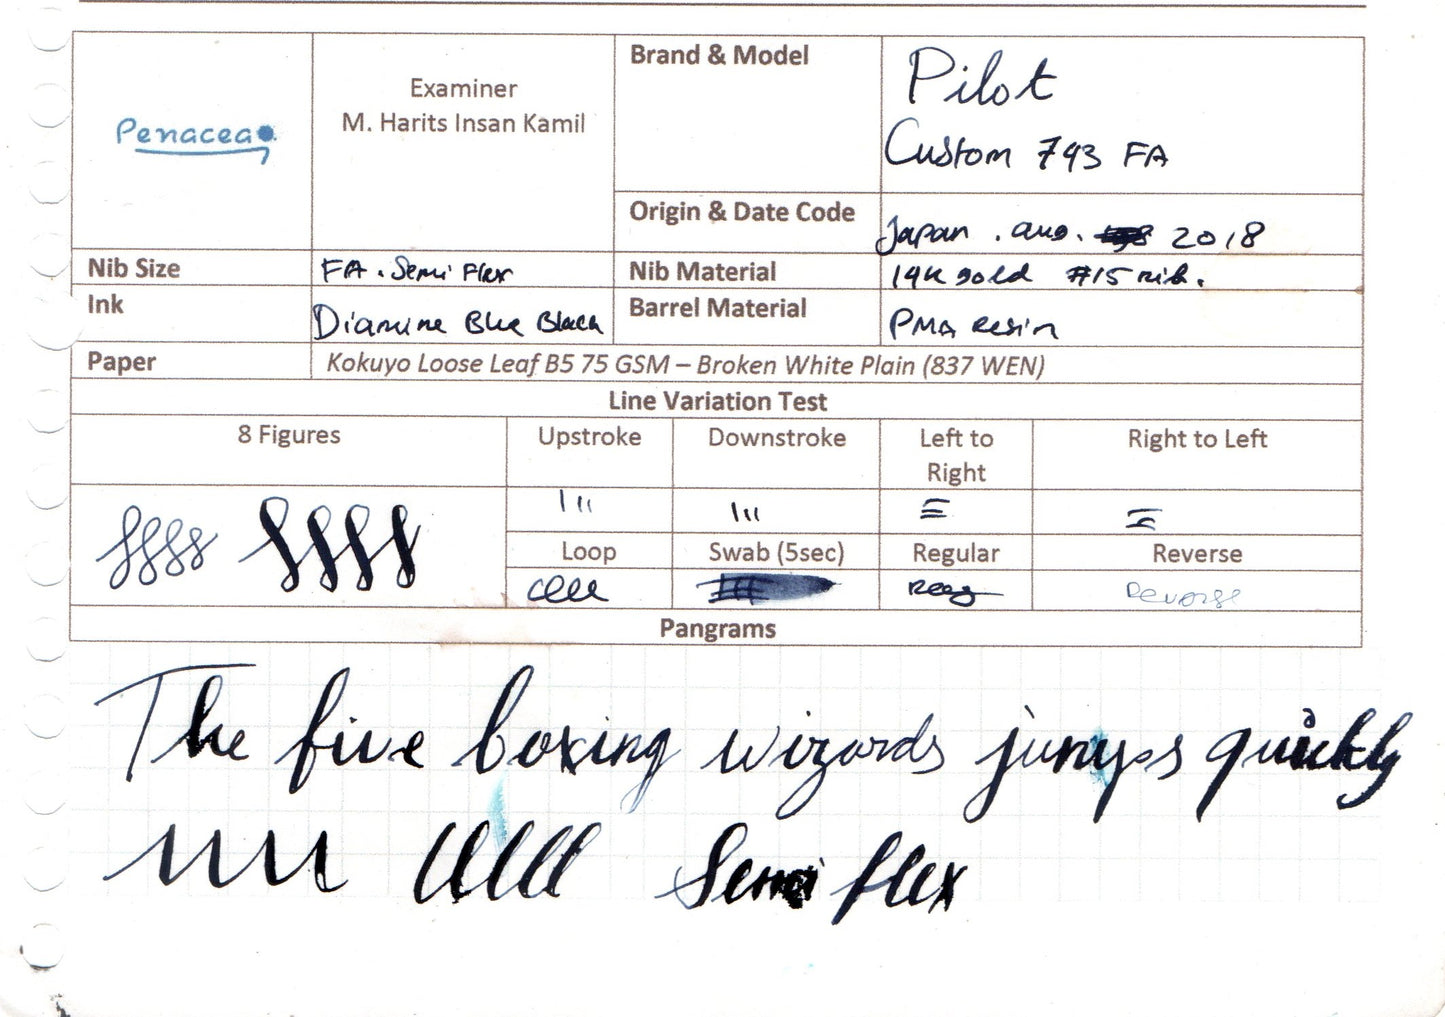 Penacea
Examiner
M. Harits Insan Kamil
Brand & Model
Pilot
Custom 743 FA
Origin & Date Code
Japan . aug. 2018
Nib Size
FA . Semi Flex
Nib Material
14K gold #15 nib.
Ink
Diamine Blue Black
Barrel Material
PMA Resin
Paper
Kokuyo Loose Leaf B5 75 GSM – Broken White Plain (837 WEN)
Line Variation Test
8 Figures
Upstroke
Downstroke
Left to
Right
Right to Left
Loop
Swab (5sec)
Regular
Reverse
Reg
Reverse
Pangrams
The five boxing wizards jumps quickly
Semi flex